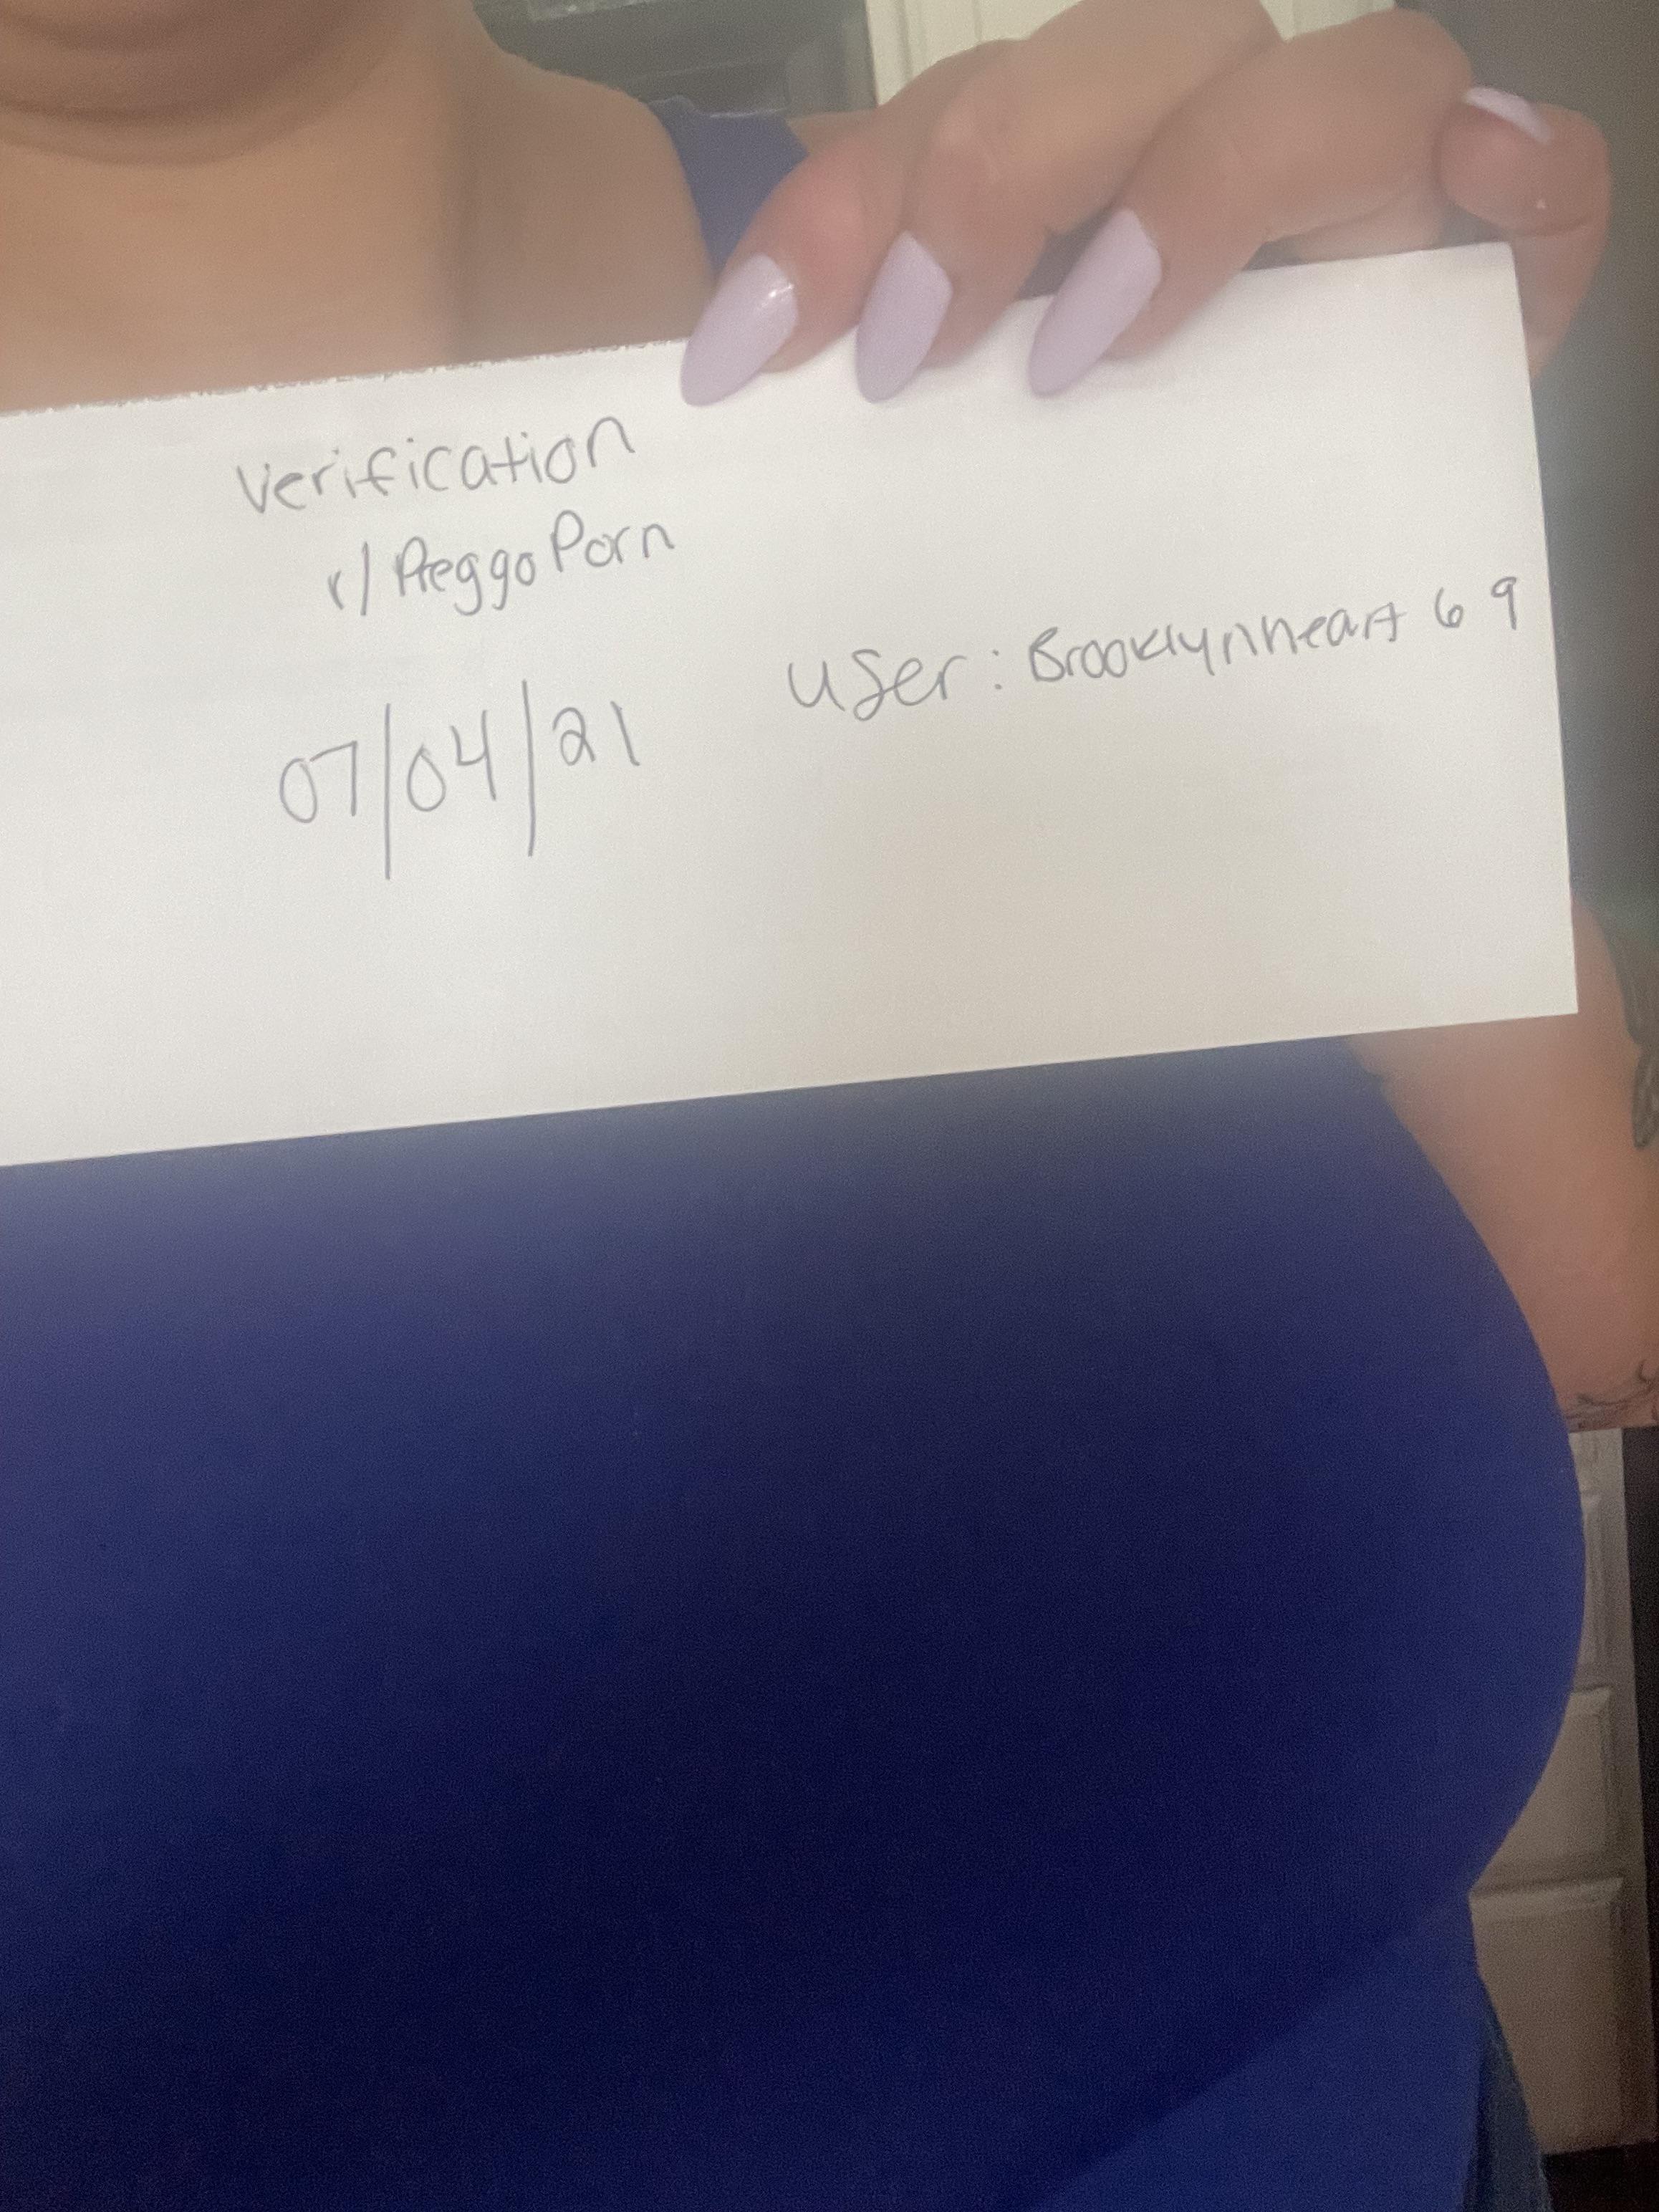 Verification
r/PreggoPorn
07/04/21
User: Brooklynheart69